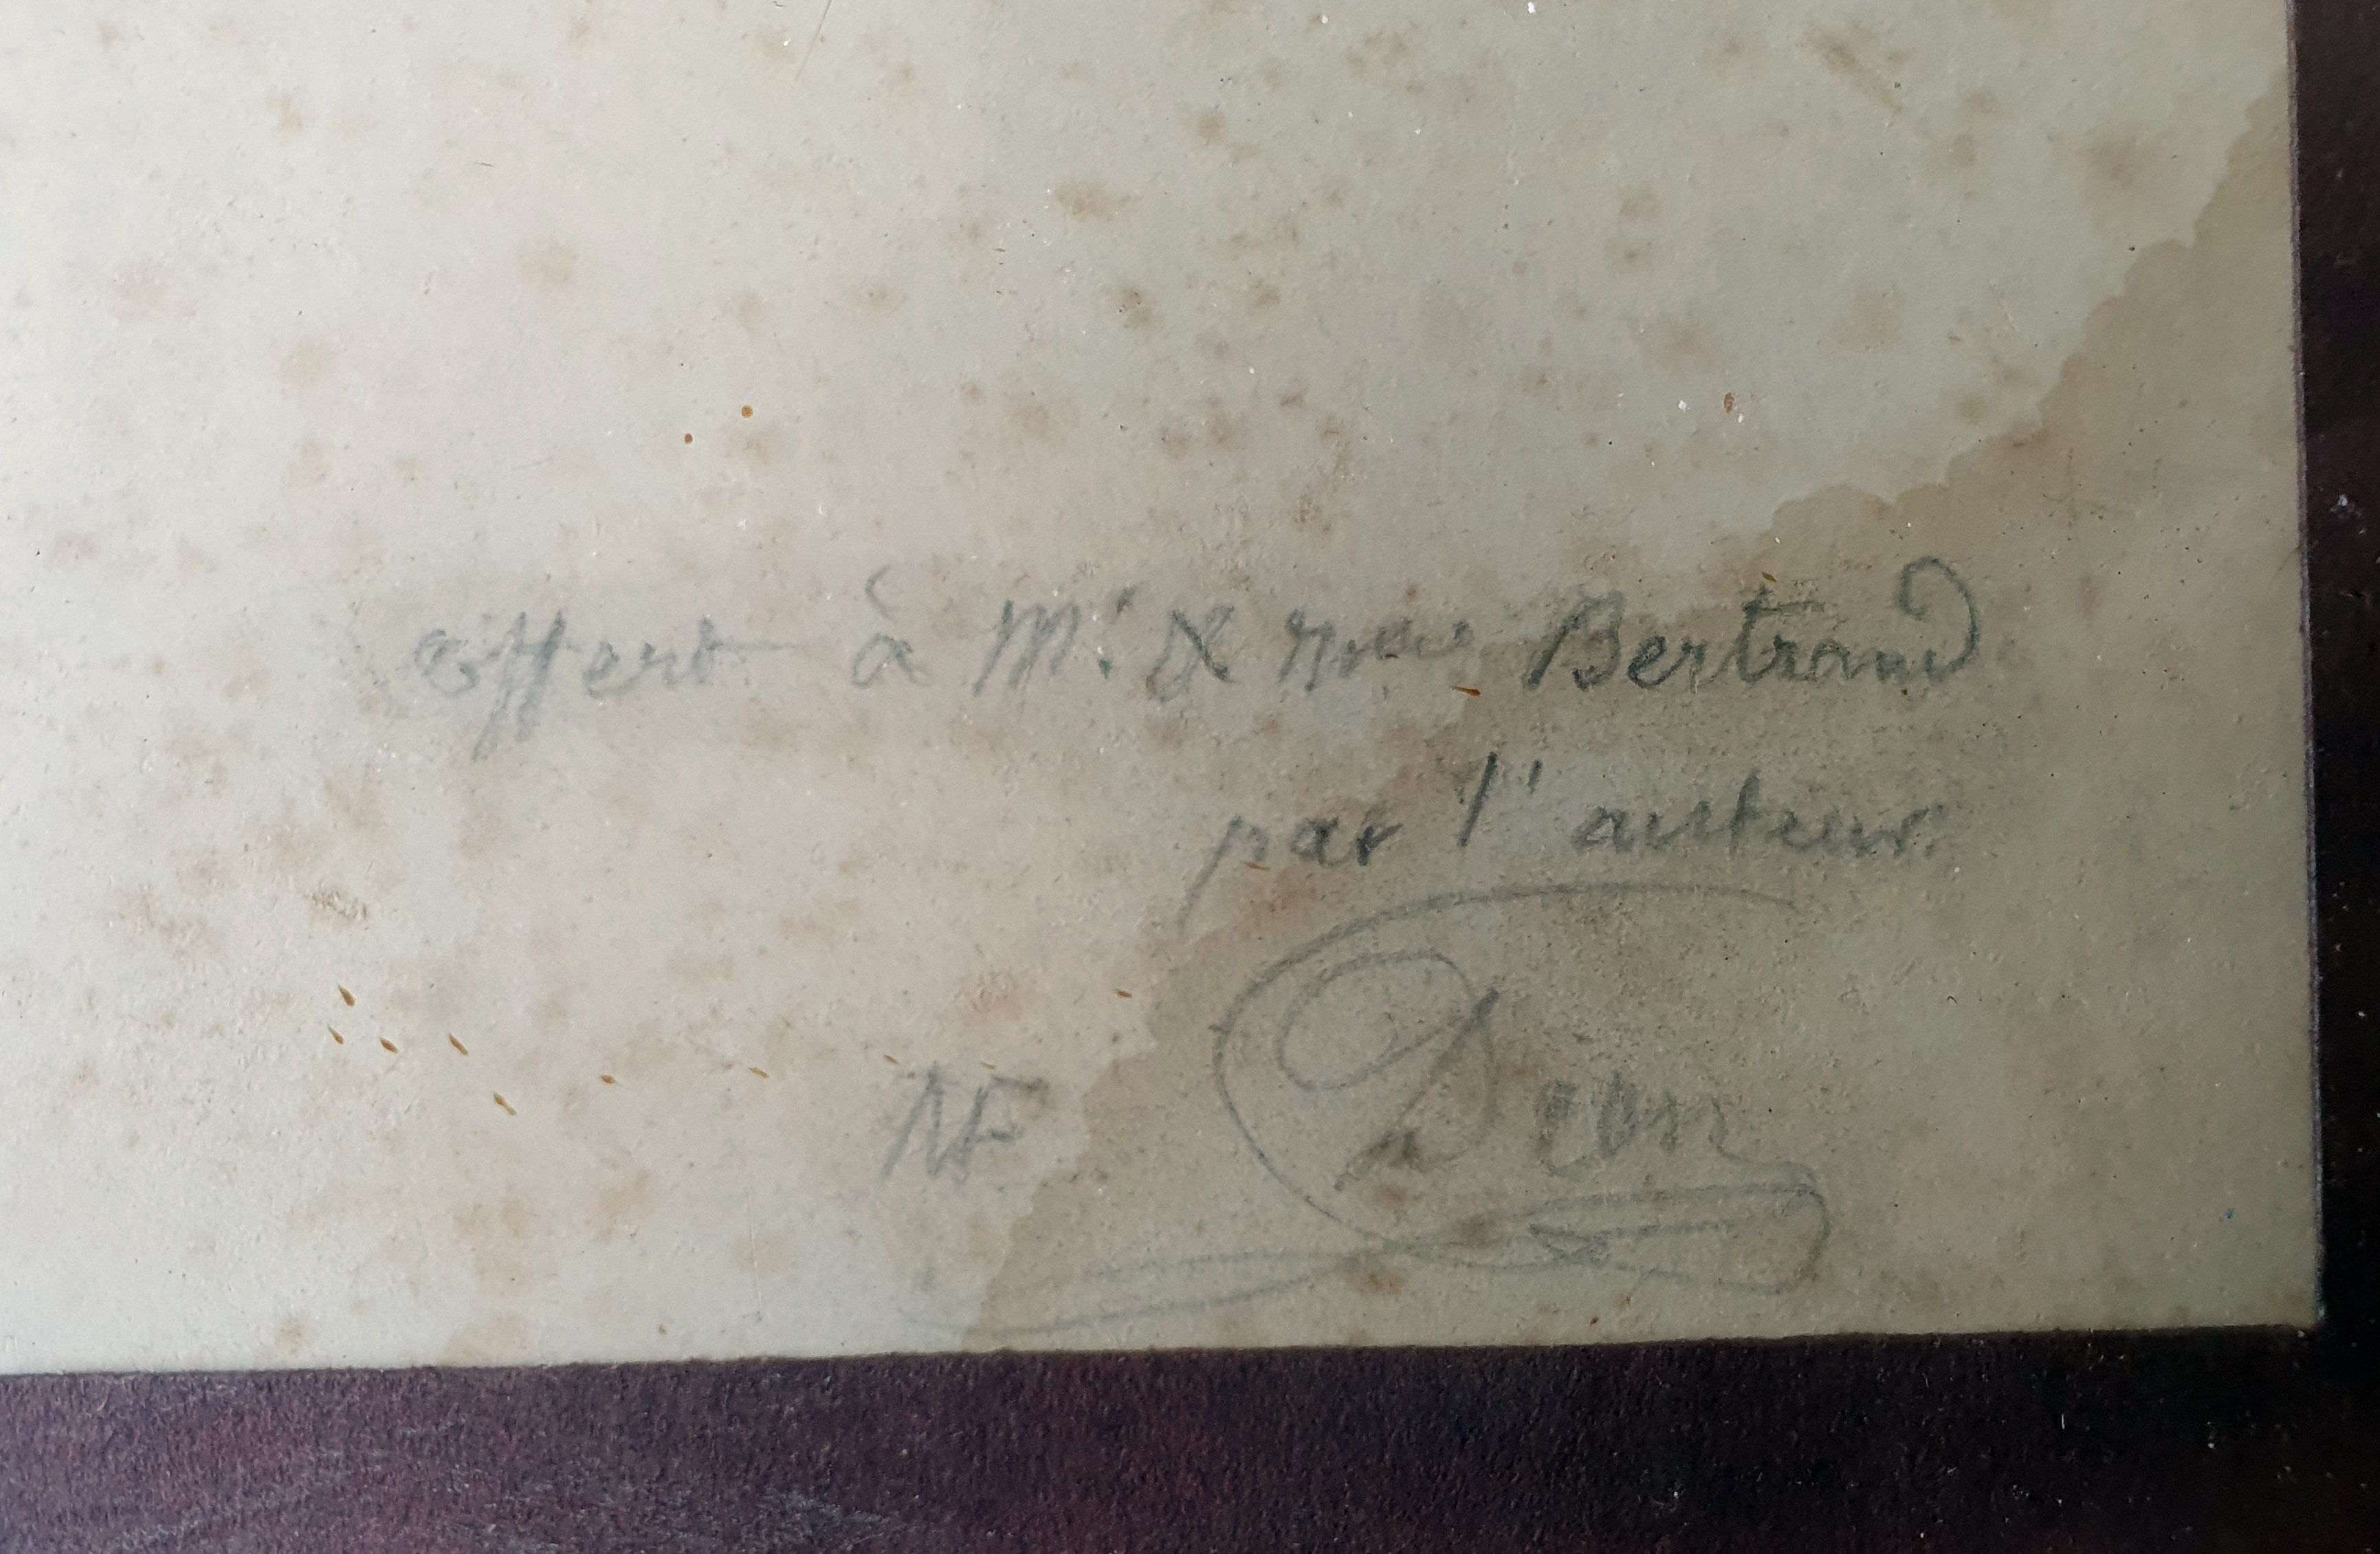 offert à Mr & Mme Bertrand
par l'auteur.
Déon